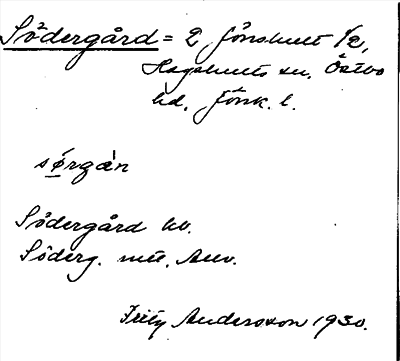 Södergård = 2 Jönshult 1/2,
Hagshults sn, Östbo
hd, Jönk. l.
sǿrgån
Södergård hv.
Söderg. mtl, Anv.
Fritz Andersson 1930.